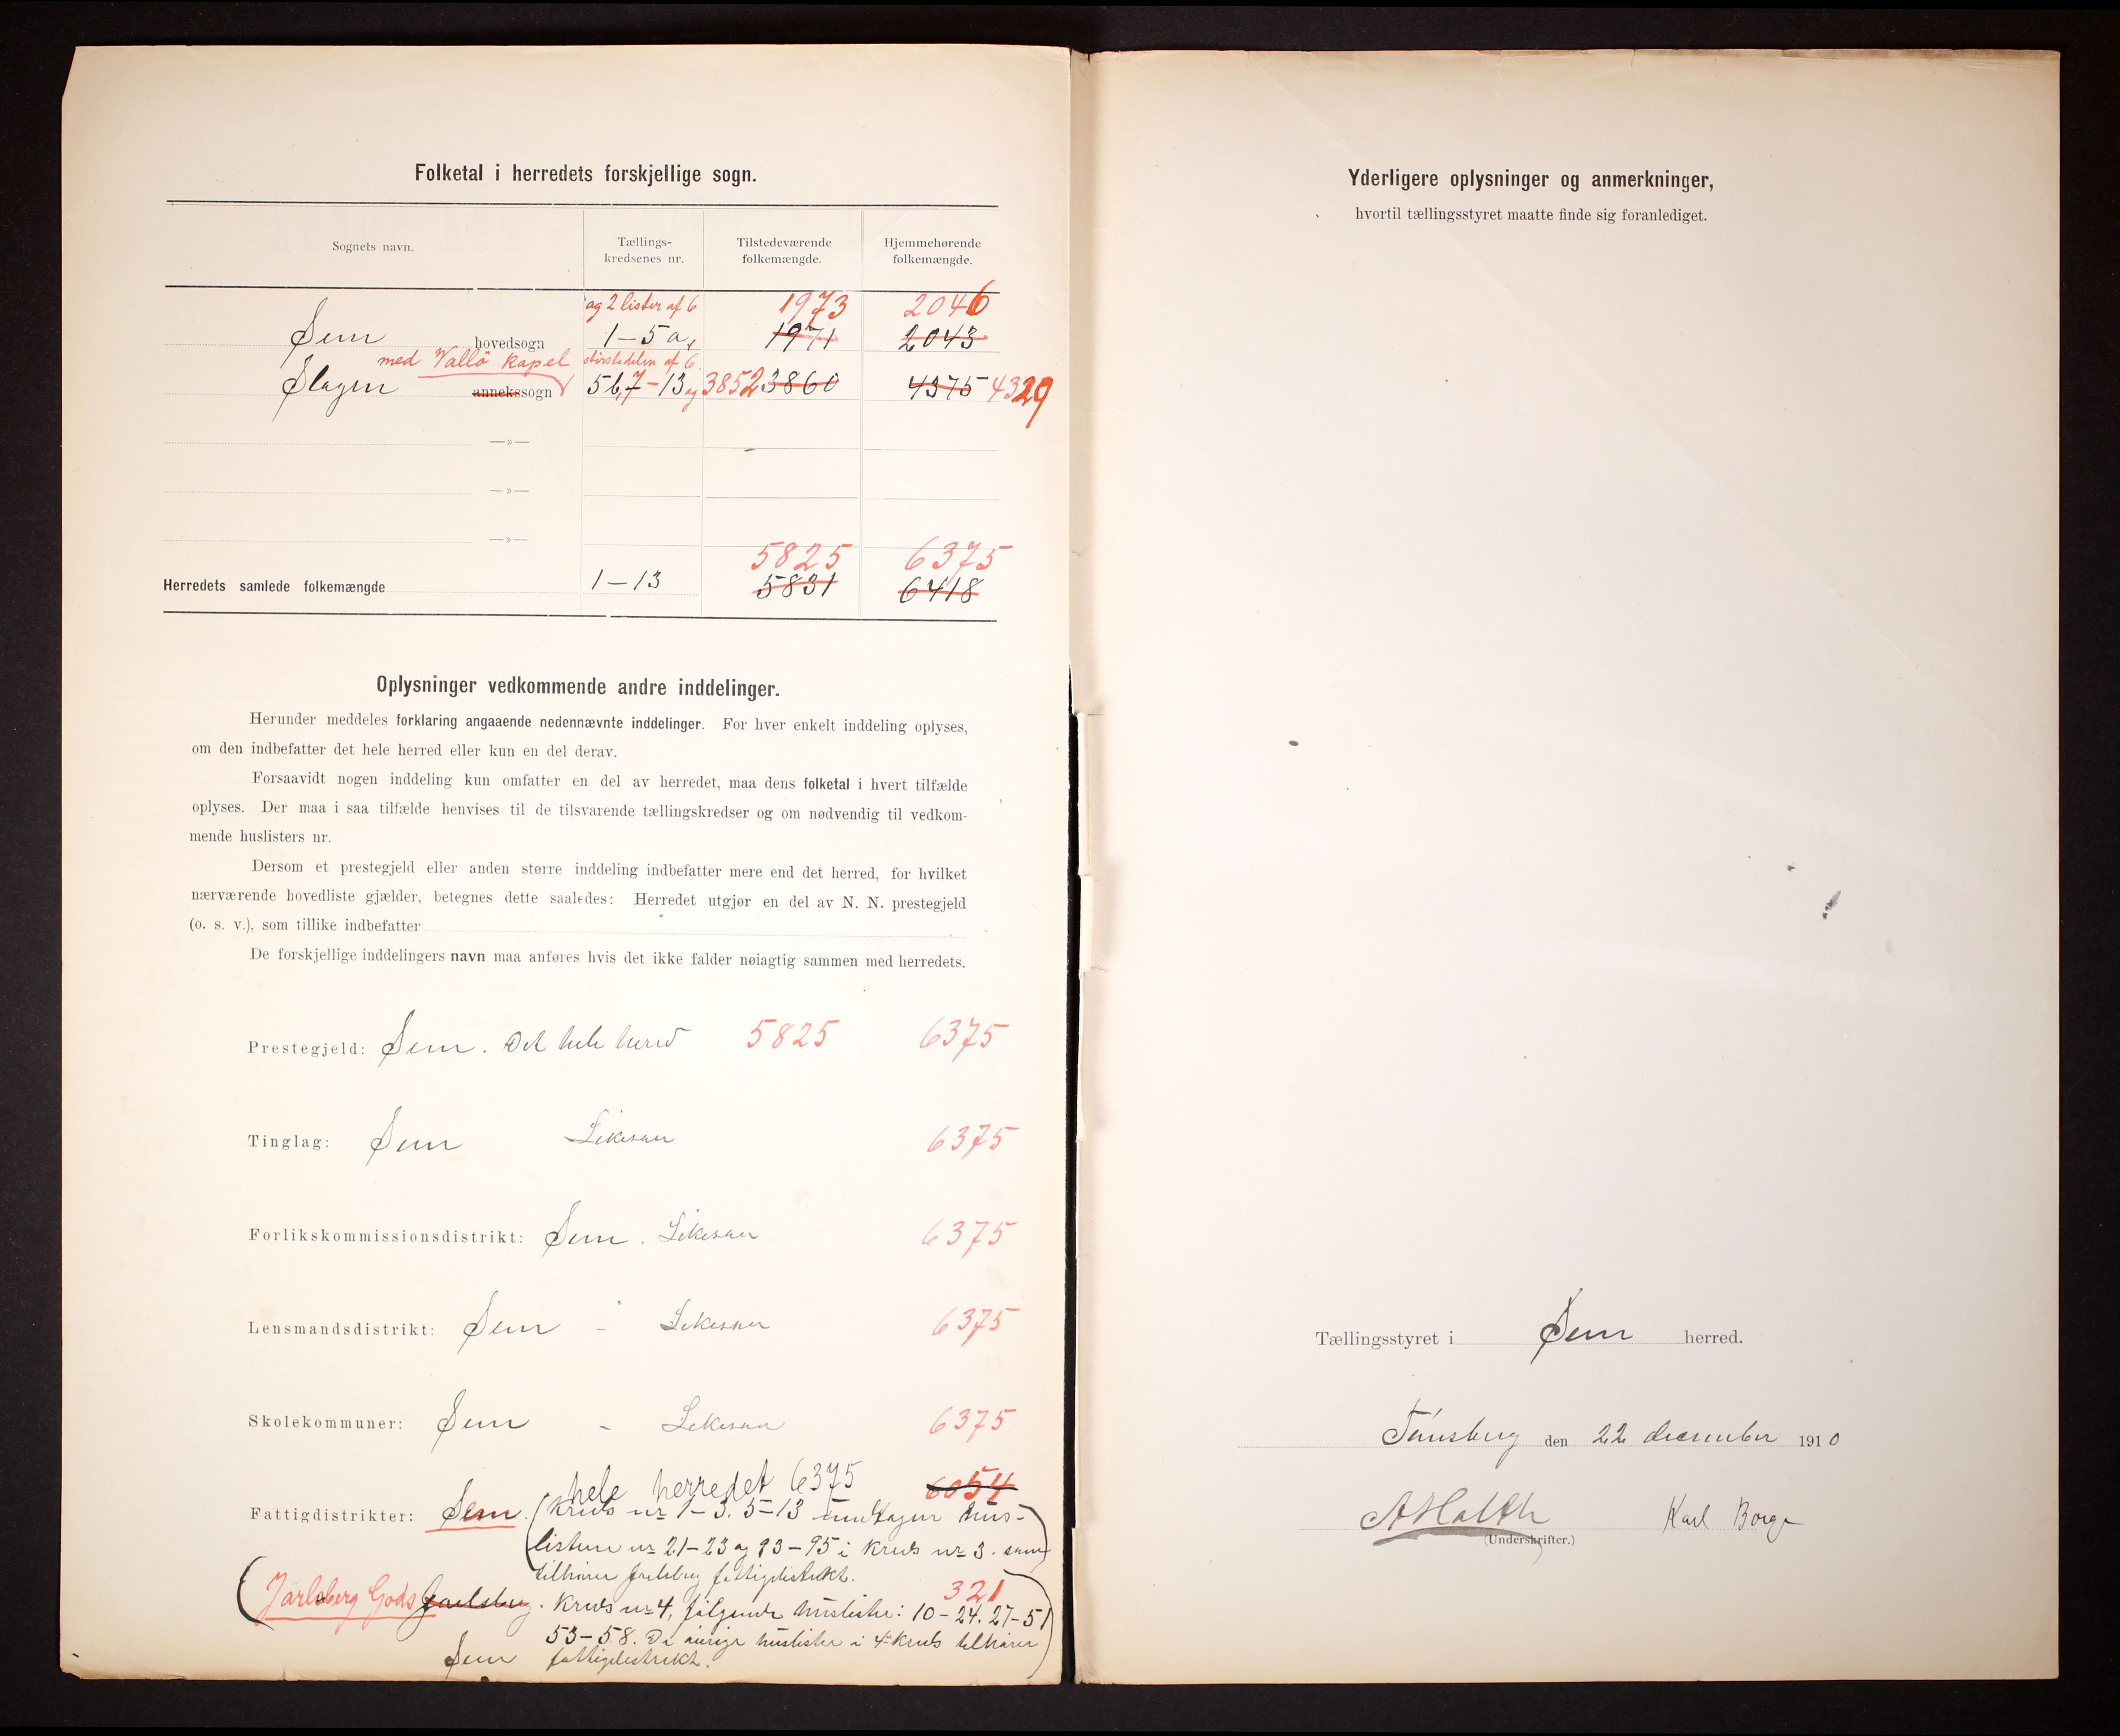 Folketal i herredets forskjellige sogn.
Sognets navn.
Tællings-
kredsenes nr.
Tilstedeværende
folkemængde.
Hjemmehørende
folkemængde.
og 2 lister af 6 1973 2046
Sem hovedsogn 1-5a, 1971 2043
med Vallø kapel størstedelen af 6.
Slagen annekssogn 5b,7-13 og 3852 3860 4375 4329
—»—
—»—
—»—
5825 6375
Herredets samlede folkemængde 1-13 5831 6418
Oplysninger vedkommende andre inddelinger.
Herunder meddeles forklaring angaaende nedennævnte inddelinger. For hver enkelt inddeling oplyses,
om den indbefatter det hele herred eller kun en del derav.
Forsaavidt nogen inddeling kun omfatter en del av herredet, maa dens folketal i hvert tilfælde
oplyses. Der maa i saa tilfælde henvises til de tilsvarende tællingskredser og om nødvendig til vedkom-
mende huslisters nr.
Dersom et prestegjeld eller anden større inddeling indbefatter mere end det herred, for hvilket
nærværende hovedliste gjælder, betegnes dette saaledes: Herredet utgjør en del av N. N. prestegjeld
(o. s. v.), som tillike indbefatter
De forskjellige inddelingers navn maa anføres hvis det ikke falder nøiagtig sammen med herredets.
Prestegjeld: Sem. Det hele herred 5825 6375
Tinglag: Sem Likesaa 6375
Forlikskommissionsdistrikt: Sem. Likesaa 6375
Lensmandsdistrikt: Sem - Likesaa 6375
Skolekommuner: Sem - Likesaa 6375
hele herredet 6375 6054
Fattigdistrikter: Sem. (Kreds nr 1-3. 5-13 undtagen hus-
listene nr 21-23 og 93-95 i Kreds nr 3. som
tilhører Jarlsberg fattigdistrikt.
321
(Jarlsberg Gods Jarlsberg. Kreds nr 4, følgende huslister: 10-24. 27-51
53-58. De øvrige huslister i 4 Kreds tilhører
Sem fattigdistrikt.
Yderligere oplysninger og anmerkninger,
hvortil tællingsstyret maatte finde sig foranlediget.
Tællingsstyret i Sem herred.
Tønsberg den 22 december 1910
Karl Borge
(Underskrifter.)